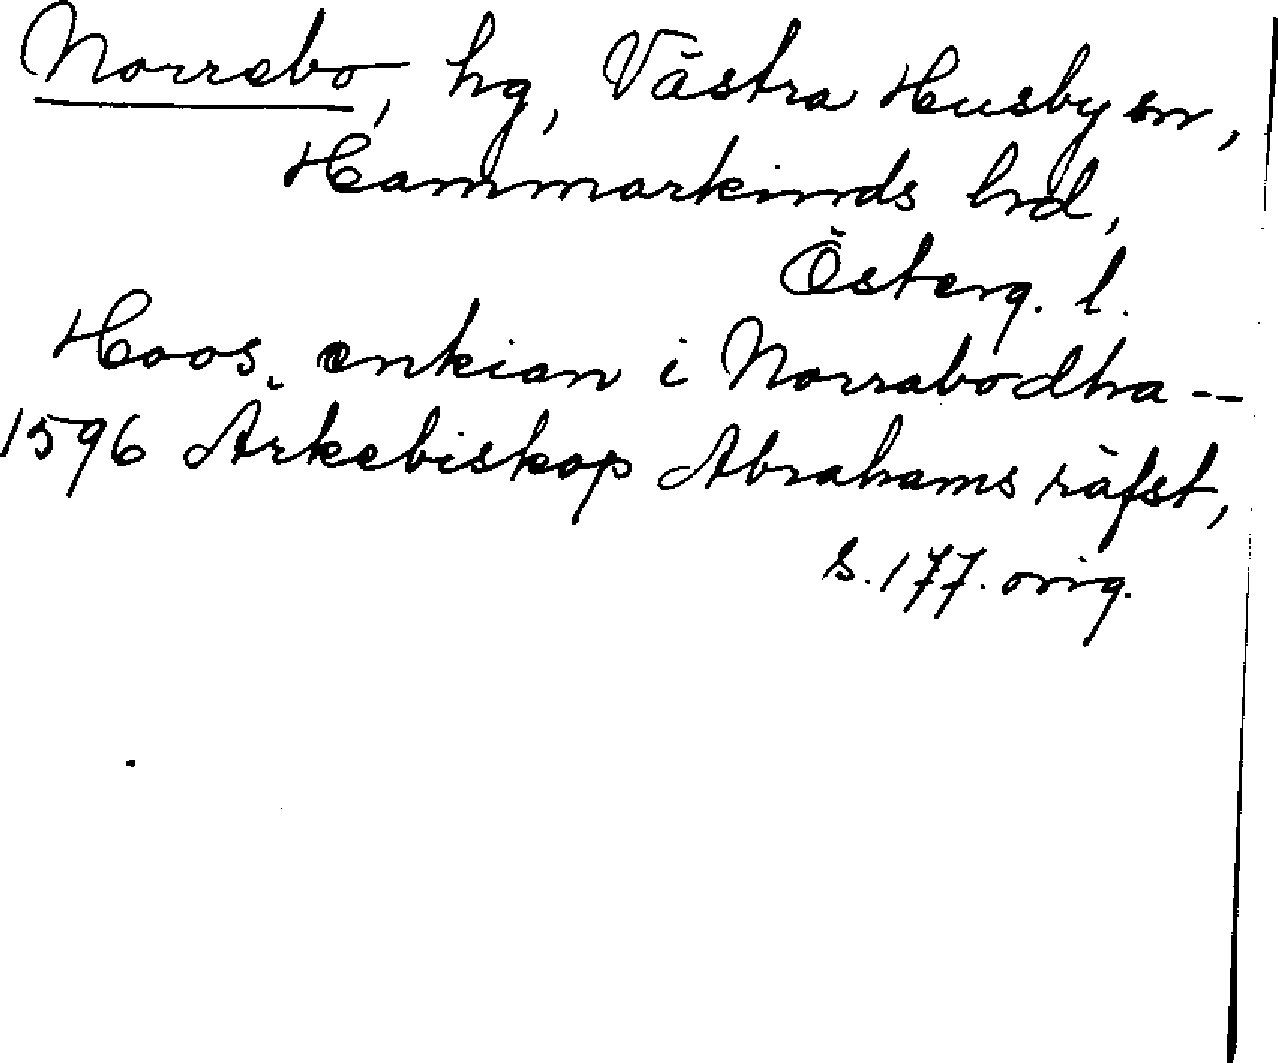 Norrebo, hg, Västra Husby sn,
Hammarkinds hd,
Österg. l.
Hoos enkian i Norrabodha --
1596 Ärkebiskop Abrahams räfst,
s. 177. orig.